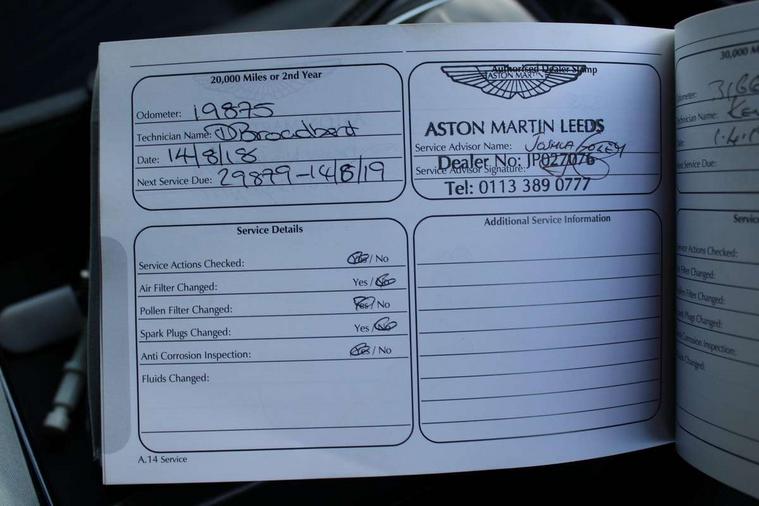 20,000 Miles or 2nd Year
Odometer: 19875
Technician Name: D Broadbent
Date: 14/8/18
Next Service Due: 29899-14/8/19
Authorised Dealer Stamp
ASTON MARTIN
ASTON MARTIN LEEDS
Service Advisor Name: JOSHUA
Dealer No: JP027076
Service Advisor Signature:
Tel: 0113 389 0777
Service Details
Service Actions Checked: Yes / No
Air Filter Changed: Yes / No
Pollen Filter Changed: Yes / No
Spark Plugs Changed: Yes / No
Anti Corrosion Inspection: Yes / No
Fluids Changed:
Additional Service Information
A.14 Service
30,000 M
Service Due:
Servic
Actions Checked:
Filter Changed:
Filter Changed:
Plugs Changed:
Corrosion Inspection:
Changed: